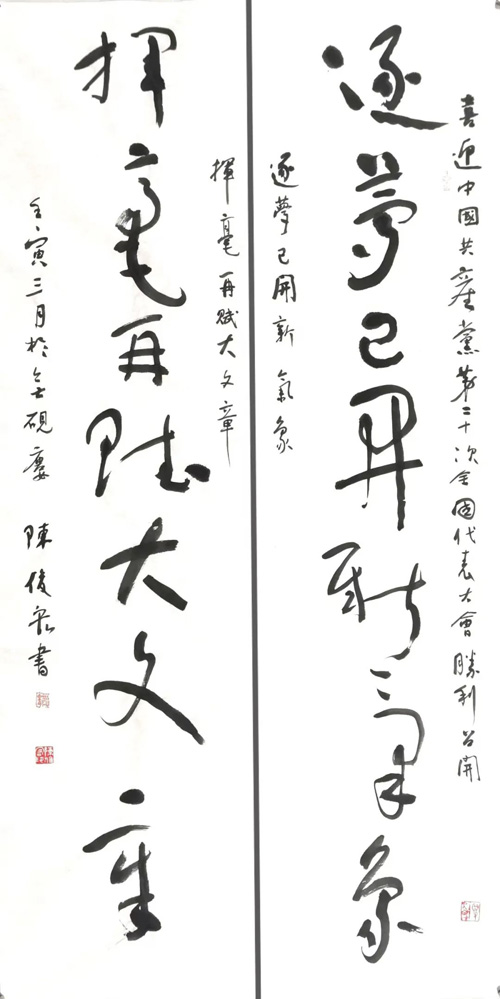 喜迎中國共產黨第二十次全國代表大會勝利召開
逐夢已開新氣象
逐夢已開新氣象
揮毫再賦大文章
揮毫再賦大文章
壬寅三月於硯 陳俊書